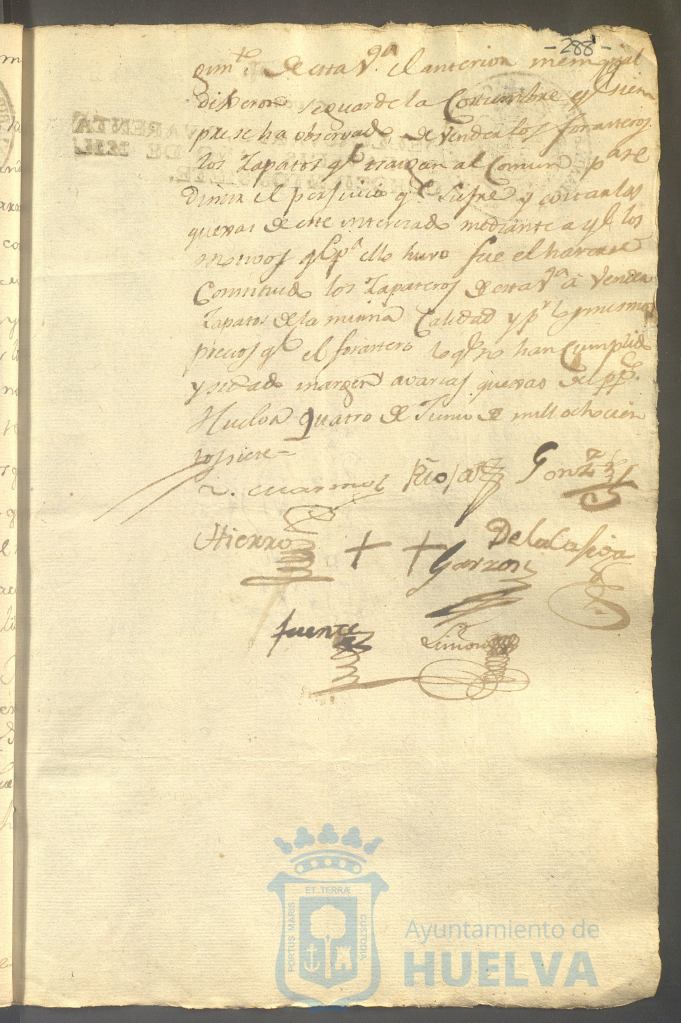 -288-
de esta V.ª el anterior memorial
dixeron se guarde la Costumbre q.e siem
pre se ha observado de vender los forasteros
los Zapatos q.e traigan al Comun p.ª re
dimir el perjuicio q.e sufre y evitar las
quexas de este interesado mediante a q.e los
motivos q.e p.ª ello huvo fue el haverse
Constituido los Zapateros de esta V.ª a vender
Zapatos de la misma Calidad y p.r los mismos
precios q.e el forastero lo q.e no han Cumplido
y si dado margen a varias quexas del pp.co
Huelva Quatro de Junio de mill ochocien
tos siete=
Gonz.z
Hierro + + Garzon De la Casiva
fuente
ET TERRÆ
PORTUS MARIS
CUSTODIA
Ayuntamiento de
HUELVA